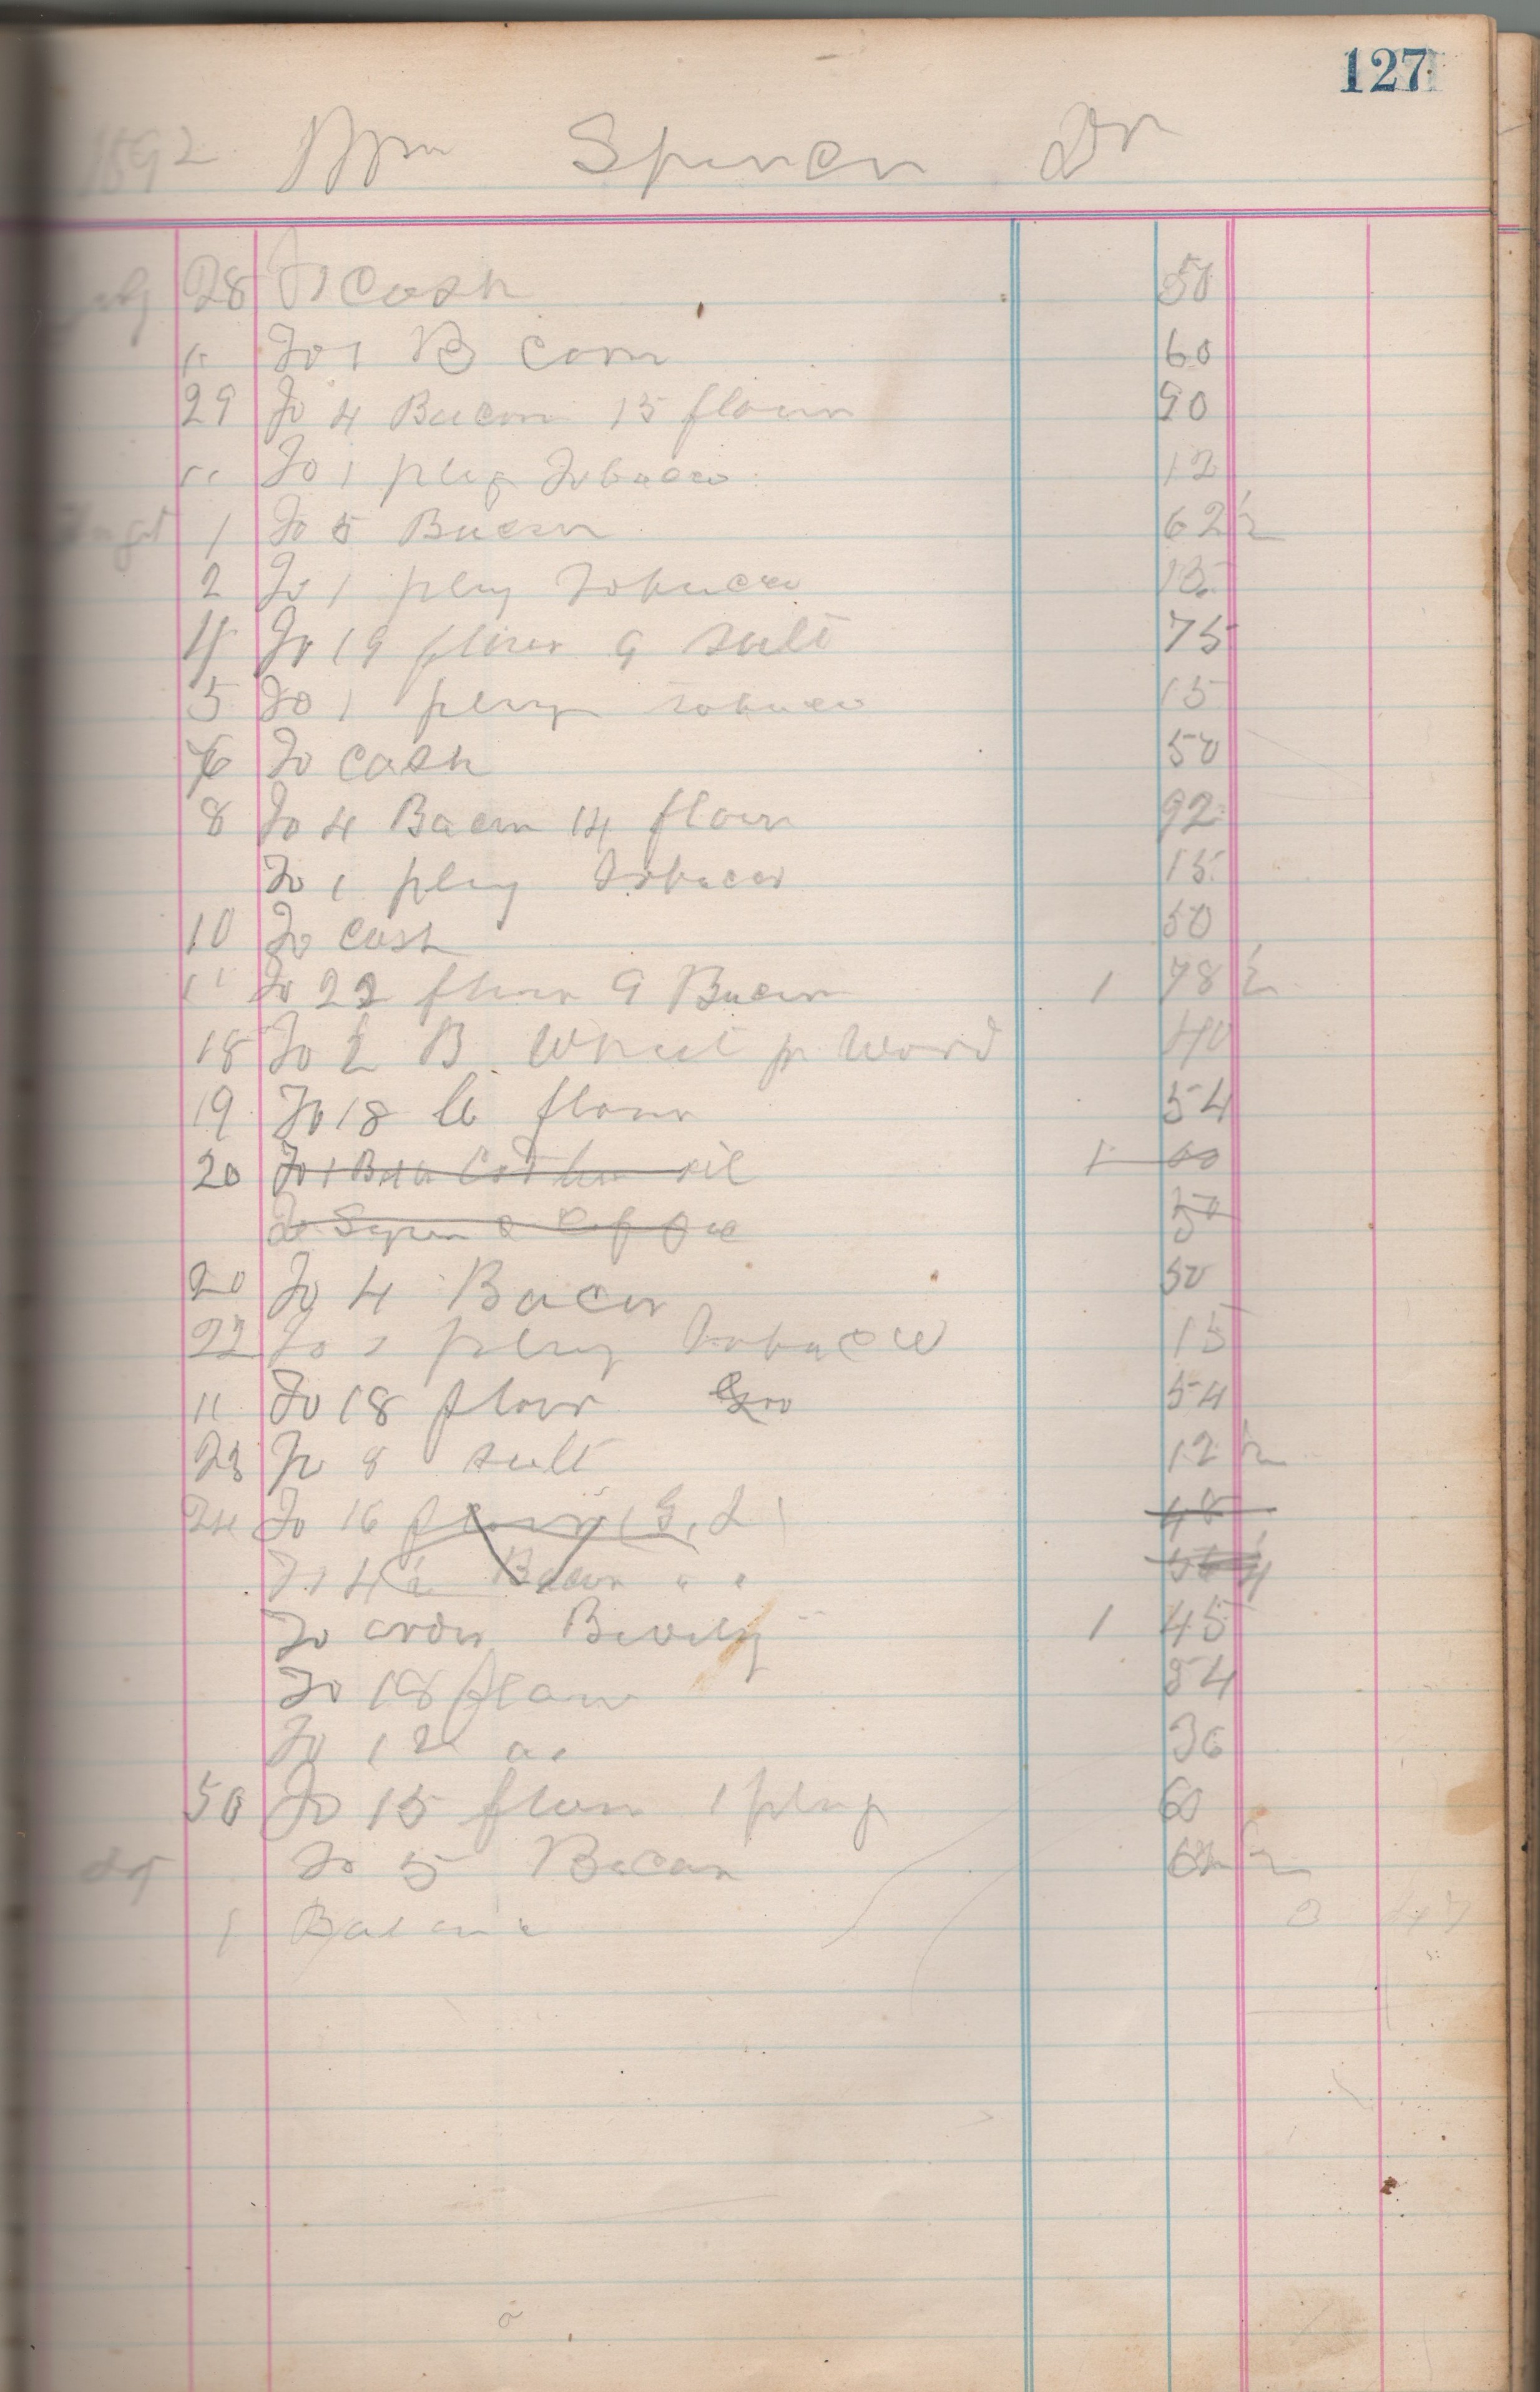 127
1892 Wm Spencer Dr
July 28 To Cash 50
" To 1 B Corn 60
29 To 4 Bacon 15 flour 90
" To 1 plug Tobacco 12
Augt 1 To 5 Bacon 62 1/2
2 To 1 plug Tobacco 15
4 To 19 flour 9 salt 75
5 To 1 plug tobacco 15
6 To Cash 50
8 To 4 Bacon 14 flour 92
To 1 plug Tobacco 15
10 To Cash 50
11 To 22 flour 9 Bacon 1 78 1/2
18 To 1/2 B Wheat pr Word 40
19 To 18 lb flour 54
20 To 1 Bottle oil 1 00
To & Coffee 50
20 To 4 Bacon 50
22 To 1 plug Tobacco 15
" To 18 flour 54
23 To 8 salt 12 1/2
24 To 16 flour (G, L) 48
To 4 1/2 Bacon " " 56 1/4
To order Bevely 1 45
To 18 flour 54
To 12 " 36
30 To 15 flour 1 plug 60
To 5 Bacon 62 1/2
1 Balance